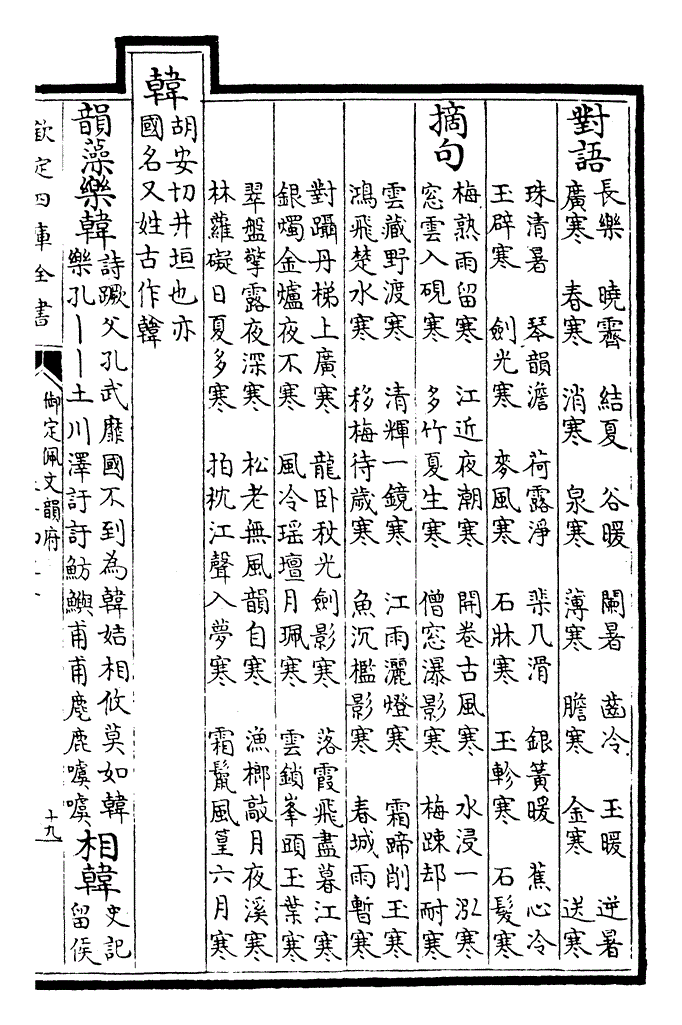 對語
長樂　曉霽　結夏　谷暖　闌暑　齒冷　玉暖　逆暑
廣寒　春寒　消寒　泉寒　薄寒　膽寒　金寒　送寒
珠清暑　琴韻澹　荷露淨　棐几滑　銀簧暖　蕉心冷
玉辟寒　劍光寒　麥風寒　石牀寒　玉軫寒　石髮寒
摘句
梅熟雨留寒　江近夜潮寒　開卷古風寒　水浸一泓寒
窓雲入硯寒　多竹夏生寒　僧窓瀑影寒　梅踈却耐寒
雲藏野渡寒　清輝一鏡寒　江雨灑燈寒　霜蹄削玉寒
鴻飛楚水寒　移梅待歲寒　魚沉檻影寒　春城雨暫寒
對躡丹梯上廣寒　龍卧秋光劍影寒　落霞飛盡暮江寒
銀燭金爐夜不寒　風冷瑶壇月珮寒　雲鎖峯頭玉葉寒
翠盤擎露夜深寒　松老無風韻自寒　漁榔敲月夜溪寒
林蘿礙日夏多寒　拍枕江聲入夢寒　霜鬣風篁六月寒
韓
胡安切井垣也亦
國名又姓古作韓
韻藻樂韓
詩蹶父孔武靡國不到為韓姞相攸莫如韓
樂孔｜｜土川澤訏訏魴鱮甫甫麀鹿噳噳
相韓
史記
留侯
欽定四庫全書
御定佩文韻府
十九